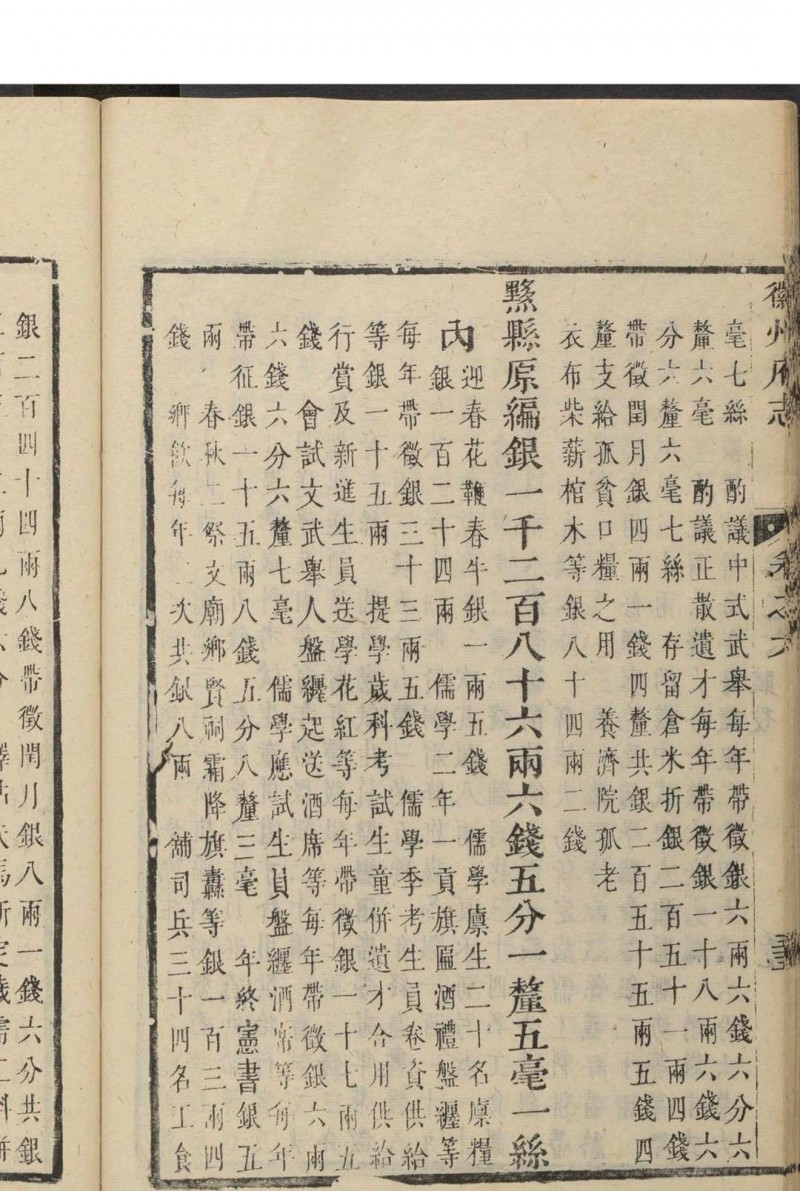 徽州府志
卷之六
毫七絲　酌議中式武舉每年帶徵銀六兩六錢六分六
釐六毫　酌議正散遺才每年帶徵銀一十八兩六錢六
分六釐六毫七絲　存留倉米折銀二百五十一兩四錢
帶徵閏月銀四兩一錢四釐共銀二百五十五兩五錢四
釐支給孤貧口糧之用　養濟院孤老
衣布柴薪棺木等銀八十四兩二錢
黟縣原編銀一千二百八十六兩六錢五分一釐五毫一絲
內迎春花鞭春牛銀一兩五錢　儒學廪生二十名廪糧
銀一百二十四兩　儒學二年一貢旗匾酒禮盤纏等
每年帶徵銀三十三兩五錢　儒學季考生員卷資供給
等銀一十五兩　提學歲科考試生童併遺才合用供給
行賞及新進生員送學花紅等每年帶徵銀一十七兩五
錢　會試文武舉人盤纏起送酒席等每年帶徵銀六兩
六錢六分六釐七毫　儒學應試生員盤纏酒席等每年
帶征銀一十五兩八錢五分八釐三毫　年終憲書銀五
兩　春秋二祭文廟鄉賢祠霜降旗纛等銀一百三兩四
錢　鄉飲每年二次共銀八兩　舖司兵三十四名工食
銀二百四十四兩八錢帶徵閏月銀八兩一錢六分共銀